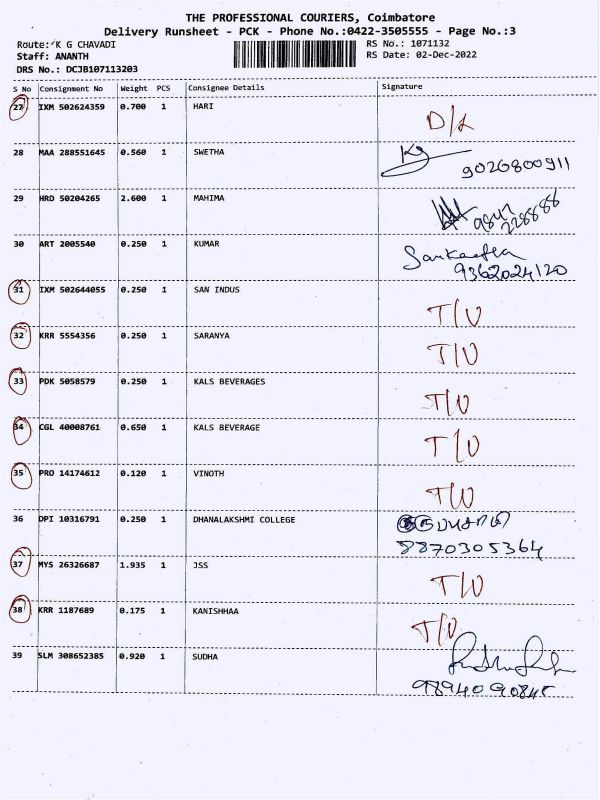 THE PROFESSIONAL COURIERS, Coimbatore
Delivery Runsheet - PCK - Phone No.:0422-3505555 - Page No.:3
Route: K G CHAVADI RS No.: 1071132
Staff: ANANTH RS Date: 02-Dec-2022
DRS No.: DCJB107113203
S No Consignment No Weight PCS Consignee Details Signature
27 IXM 502624359 0.700 1 HARI D/L
28 MAA 288551645 0.560 1 SWETHA
9026800911
29 HRD 50204265 2.600 1 MAHIMA
228886
30 ART 2005540 0.250 1 KUMAR
9362024120
31 IXM 502644055 0.250 1 SAN INDUS T/U
32 KRR 5554356 0.250 1 SARANYA T/U
33 PDK 5058579 0.250 1 KALS BEVERAGES T/U
34 CGL 40008761 0.650 1 KALS BEVERAGE T/U
35 PRO 14174612 0.120 1 VINOTH T/U
36 DPI 10316791 0.250 1 DHANALAKSHMI COLLEGE
8870305364
37 MYS 26326687 1.935 1 JSS T/U
38 KRR 1187689 0.175 1 KANISHHAA T/U
39 SLM 308652385 0.920 1 SUDHA
9894090845